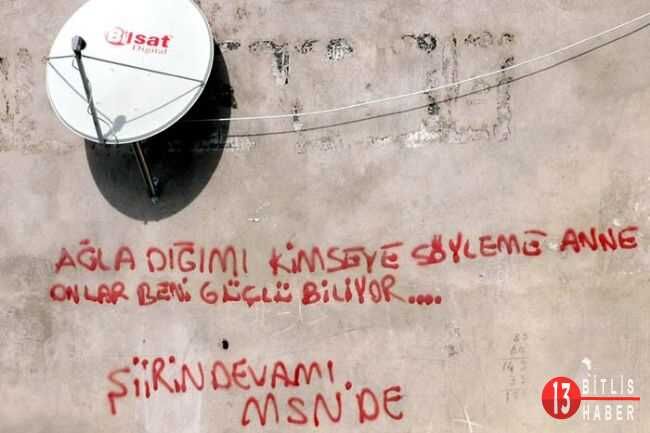 Bilsat
Digital
AĞLA DIĞIMI KİMSEYE SÖYLEME ANNE
ONLAR BENİ GÜÇLÜ BİLİYOR....
ŞİİRİN DEVAMI
MSN'DE
13 BİTLİS
HABER